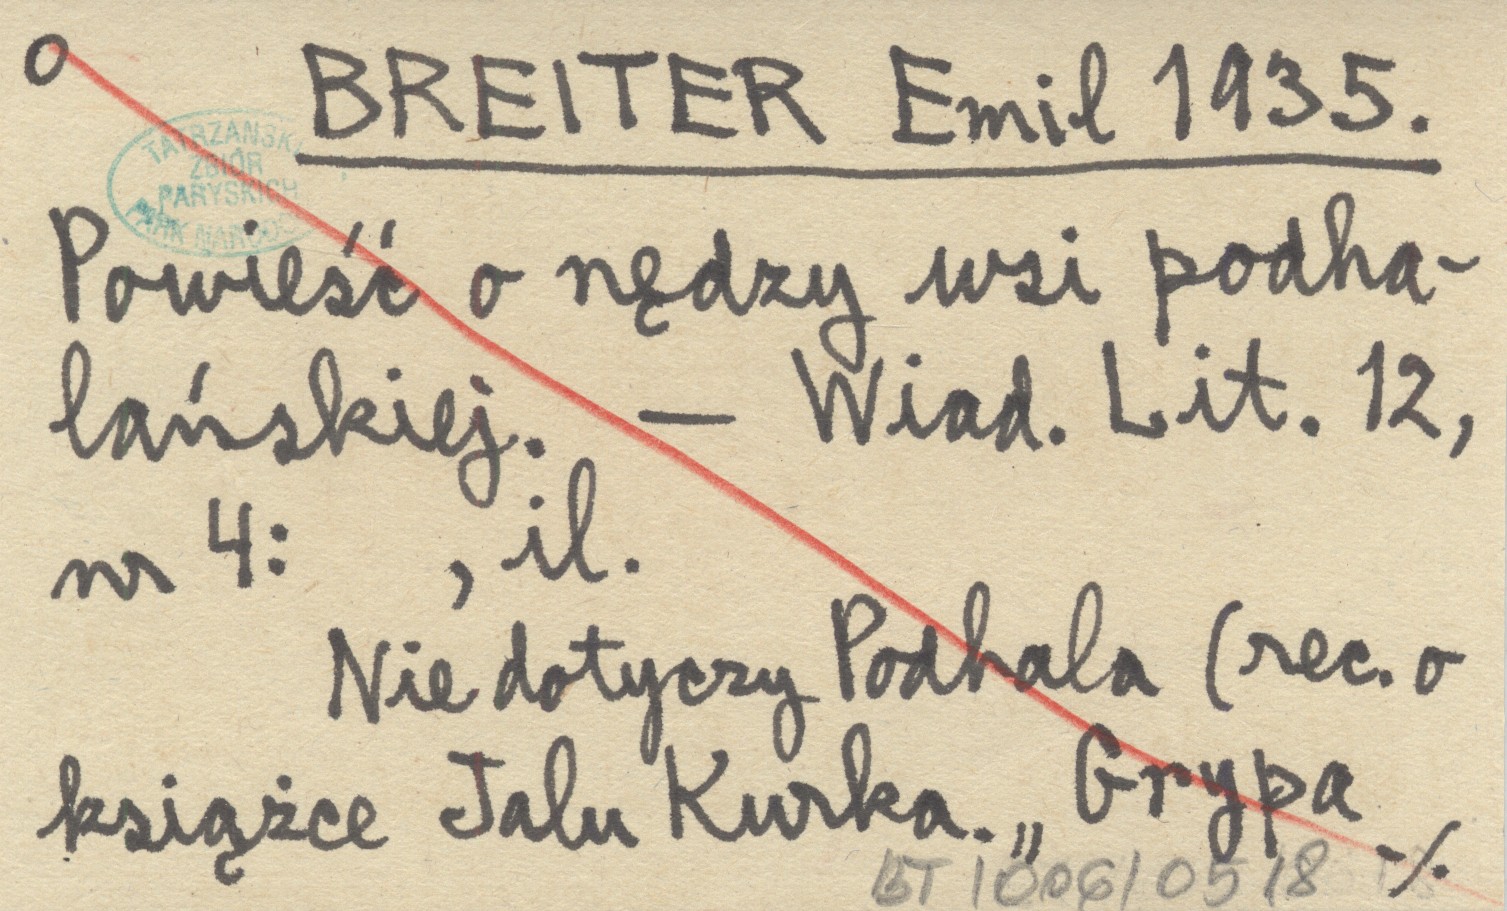 o BREITER Emil 1935.
TATRZAŃSKI
ZBIÓR
PARYSKICH
PARK NARODO
Powieść o nędzy wsi podha-
lańskiej. — Wiad. Lit. 12,
nr 4: , il.
Nie dotyczy Podhala (rec. o
książce Jalu Kurka. „Grypa
-/.
BT 1006/05/8